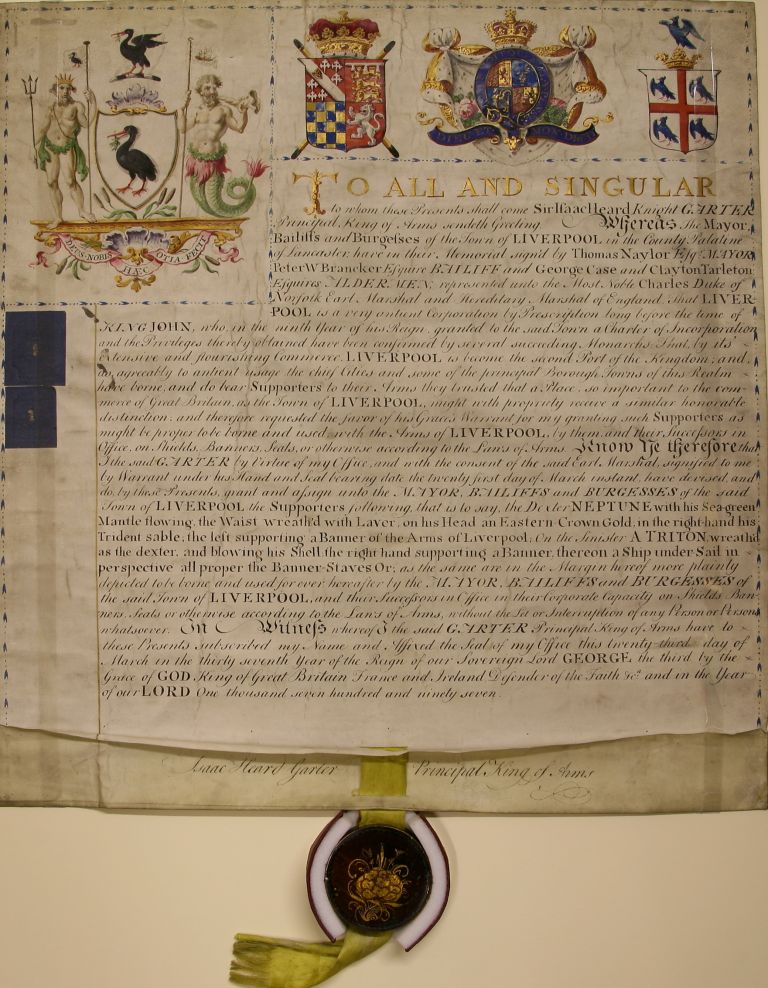 DEUS·NOBIS
HÆC
OTIA FECIT
TO ALL AND SINGULAR
to whom these Presents shall come Sir Isaac Heard Knight GARTER
Principal King of Arms sendeth Greeting Whereas the Mayor,
Bailiffs and Burgesses of the Town of LIVERPOOL in the County Palatine
of Lancaster, have in their Memorial sign'd by Thomas Naylor Esqr. MAYOR
Peter W Brancker Esquire BAILIFF and George Case and Clayton Tarleton
Esquires ALDERMEN, represented unto the Most Noble Charles Duke of
Norfolk Earl Marshal and Hereditary Marshal of England, that LIVER-
POOL is a very antient Corporation by Prescription long before the time of
KING JOHN, who, in the ninth Year of his Reign, granted to the said Town a Charter of Incorporation
and the Privileges thereby obtained have been confirmed by several succeeding Monarchs That, by its
extensive and flourishing Commerce, LIVERPOOL is become the second Port of the Kingdom; and,
as, agreeably to antient usage the chief Cities and some of the principal Borough Towns of this Realm
have borne, and do bear Supporters to their Arms they trusted that a Place, so important to the com-
merce of Great Britain, as the Town of LIVERPOOL, might with propriety receive a similar honorable
distinction; and therefore requested the favor of his Grace's Warrant for my granting such Supporters as
might be proper to be borne and used, with the Arms of LIVERPOOL, by them, and their Successors in
Office, on Shields, Banners, Seals, or otherwise according to the Laws of Arms. Know Ye therefore that
I the said GARTER by Virtue of my Office, and with the consent of the said Earl Marshal, signified to me
by Warrant under his Hand and Seal bearing date the twenty first day of March instant, have devised, and
do, by these Presents, grant and assign unto the MAYOR, BAILIFFS and BURGESSES of the said
Town of LIVERPOOL the Supporters following, that is to say, the Dexter NEPTUNE with his Sea-green
Mantle flowing, the Waist wreath'd with Laver, on his Head an Eastern Crown Gold, in the right hand his
Trident sable, the left supporting a Banner of the Arms of Liverpool; On the Sinister A TRITON, wreath'd
as the dexter, and blowing his Shell the right hand supporting a Banner, thereon a Ship under Sail in
perspective all proper the Banner-Staves Or; as the same are in the Margin hereof more plainly
depicted to be borne and used for ever hereafter by the MAYOR, BAILIFFS and BURGESSES of
the said Town of LIVERPOOL, and their Successors in Office in their Corporate Capacity on Shields Ban-
ners, Seals or otherwise according to the Laws of Arms, without the Let or Interruption of any Person or Persons
whatsoever. In Witness whereof I the said GARTER Principal King of Arms have to
these Presents subscribed my Name and Affixed the Seal of my Office this twenty third day of
March in the thirty seventh Year of the Reign of our Sovereign Lord GEORGE the third by the
Grace of GOD, King of Great Britain France and Ireland Defender of the Faith &c. and in the Year
of our LORD One thousand seven hundred and ninety seven.
Isaac Heard Garter Principal King of Arms